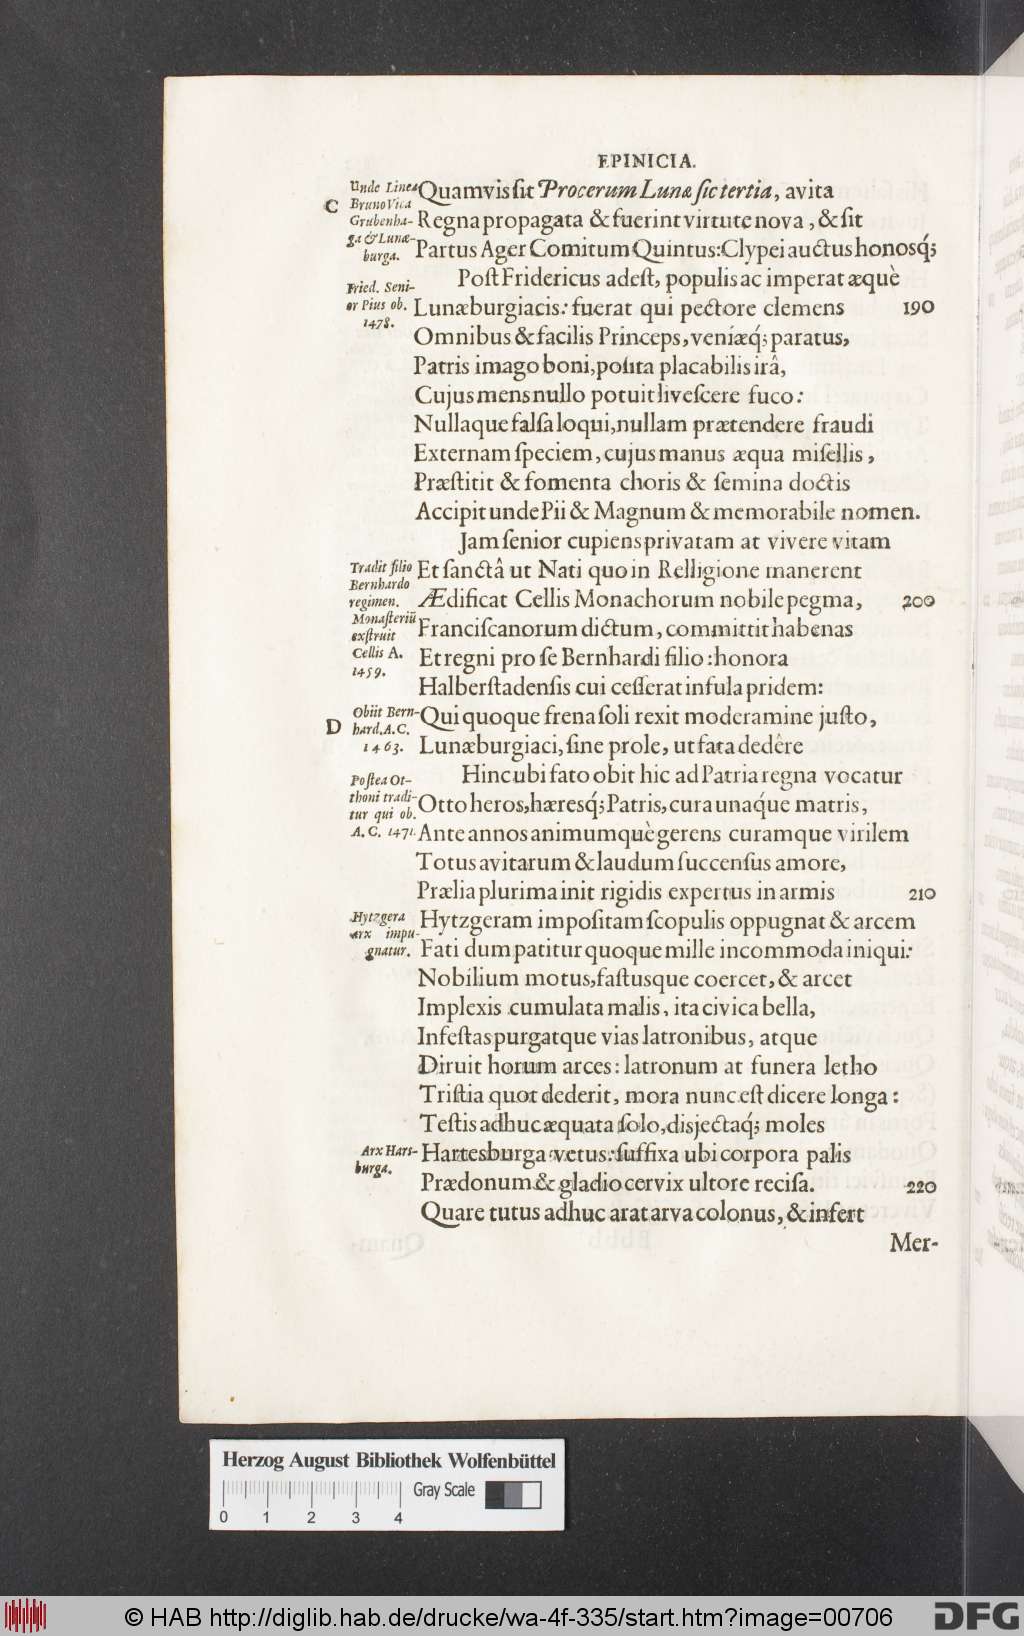 EPINICIA.
Unde Linea
C Bruno Vica
Grubenha-
ga & Lunæ-
burga.
Quamvis sit Procerum Lunæ sic tertia, avita
Regna propagata & fuerint virtute nova, & sit
Partus Ager Comitum Quintus: Clypei auctus honosq́;
Post Fridericus adest, populis ac imperat æquè
Fried. Seni-
or Pius ob.
1478.
Lunæburgiacis: fuerat qui pectore clemens 190
Omnibus & facilis Princeps, veníæq́; paratus,
Patris imago boni, posita placabilis irâ,
Cujus mens nullo potuit livescere fuco:
Nullaque falsa loqui, nullam prætendere fraudi
Externam speciem, cujus manus æqua misellis,
Præstitit & fomenta choris & semina doctis
Accipit unde Pii & Magnum & memorabile nomen.
Jam senior cupiens privatam at vivere vitam
Tradit filio
Bernhardo
regimen.
Et sanctâ ut Nati quo in Relligione manerent
Ædificat Cellis Monachorum nobile pegma, 200
Monasteriũ
exstruit
Cellis A.
1459.
Franciscanorum dictum, committit habenas
Et regni pro se Bernhardi filio: honora
Halberstadensis cui cesserat insula pridem:
D Obiit Bern-
hard. A. C.
1463.
Qui quoque frena soli rexit moderamine justo,
Lunæburgiaci, sine prole, ut fata dedêre
Hinc ubi fato obit hic ad Patria regna vocatur
Postea Ot-
thoni tradi-
tur qui ob.
A. C. 1471.
Otto heros, hæresq́; Patris, cura unaq́ue matris,
Ante annos animumquè gerens curamque virilem
Totus avitarum & laudum succensus amore,
Prælia plurima init rigidis expertus in armis 210
Hytzgera
arx impu-
gnatur.
Hytzgeram impositam scopulis oppugnat & arcem
Fati dum patitur quoque mille incommoda iniqui:
Nobilium motus, fastusque coercet, & arcet
Implexis cumulata malis, ita civica bella,
Infestas purgatque vias latronibus, atque
Diruit horum arces: latronum at funera letho
Tristia quot dederit, mora nunc est dicere longa:
Testis adhuc æquata solo, disjectaq́; moles
Arx Hars-
burga.
Hartesburga vetus: suffixa ubi corpora palis
Prædonum & gladio cervix ultore recisa. 220
Quare tutus adhuc arat arva colonus, & infert
Mer-
Herzog August Bibliothek Wolfenbüttel
Gray Scale
0 1 2 3 4
© HAB http://diglib.hab.de/drucke/wa-4f-335/start.htm?image=00706
DFG